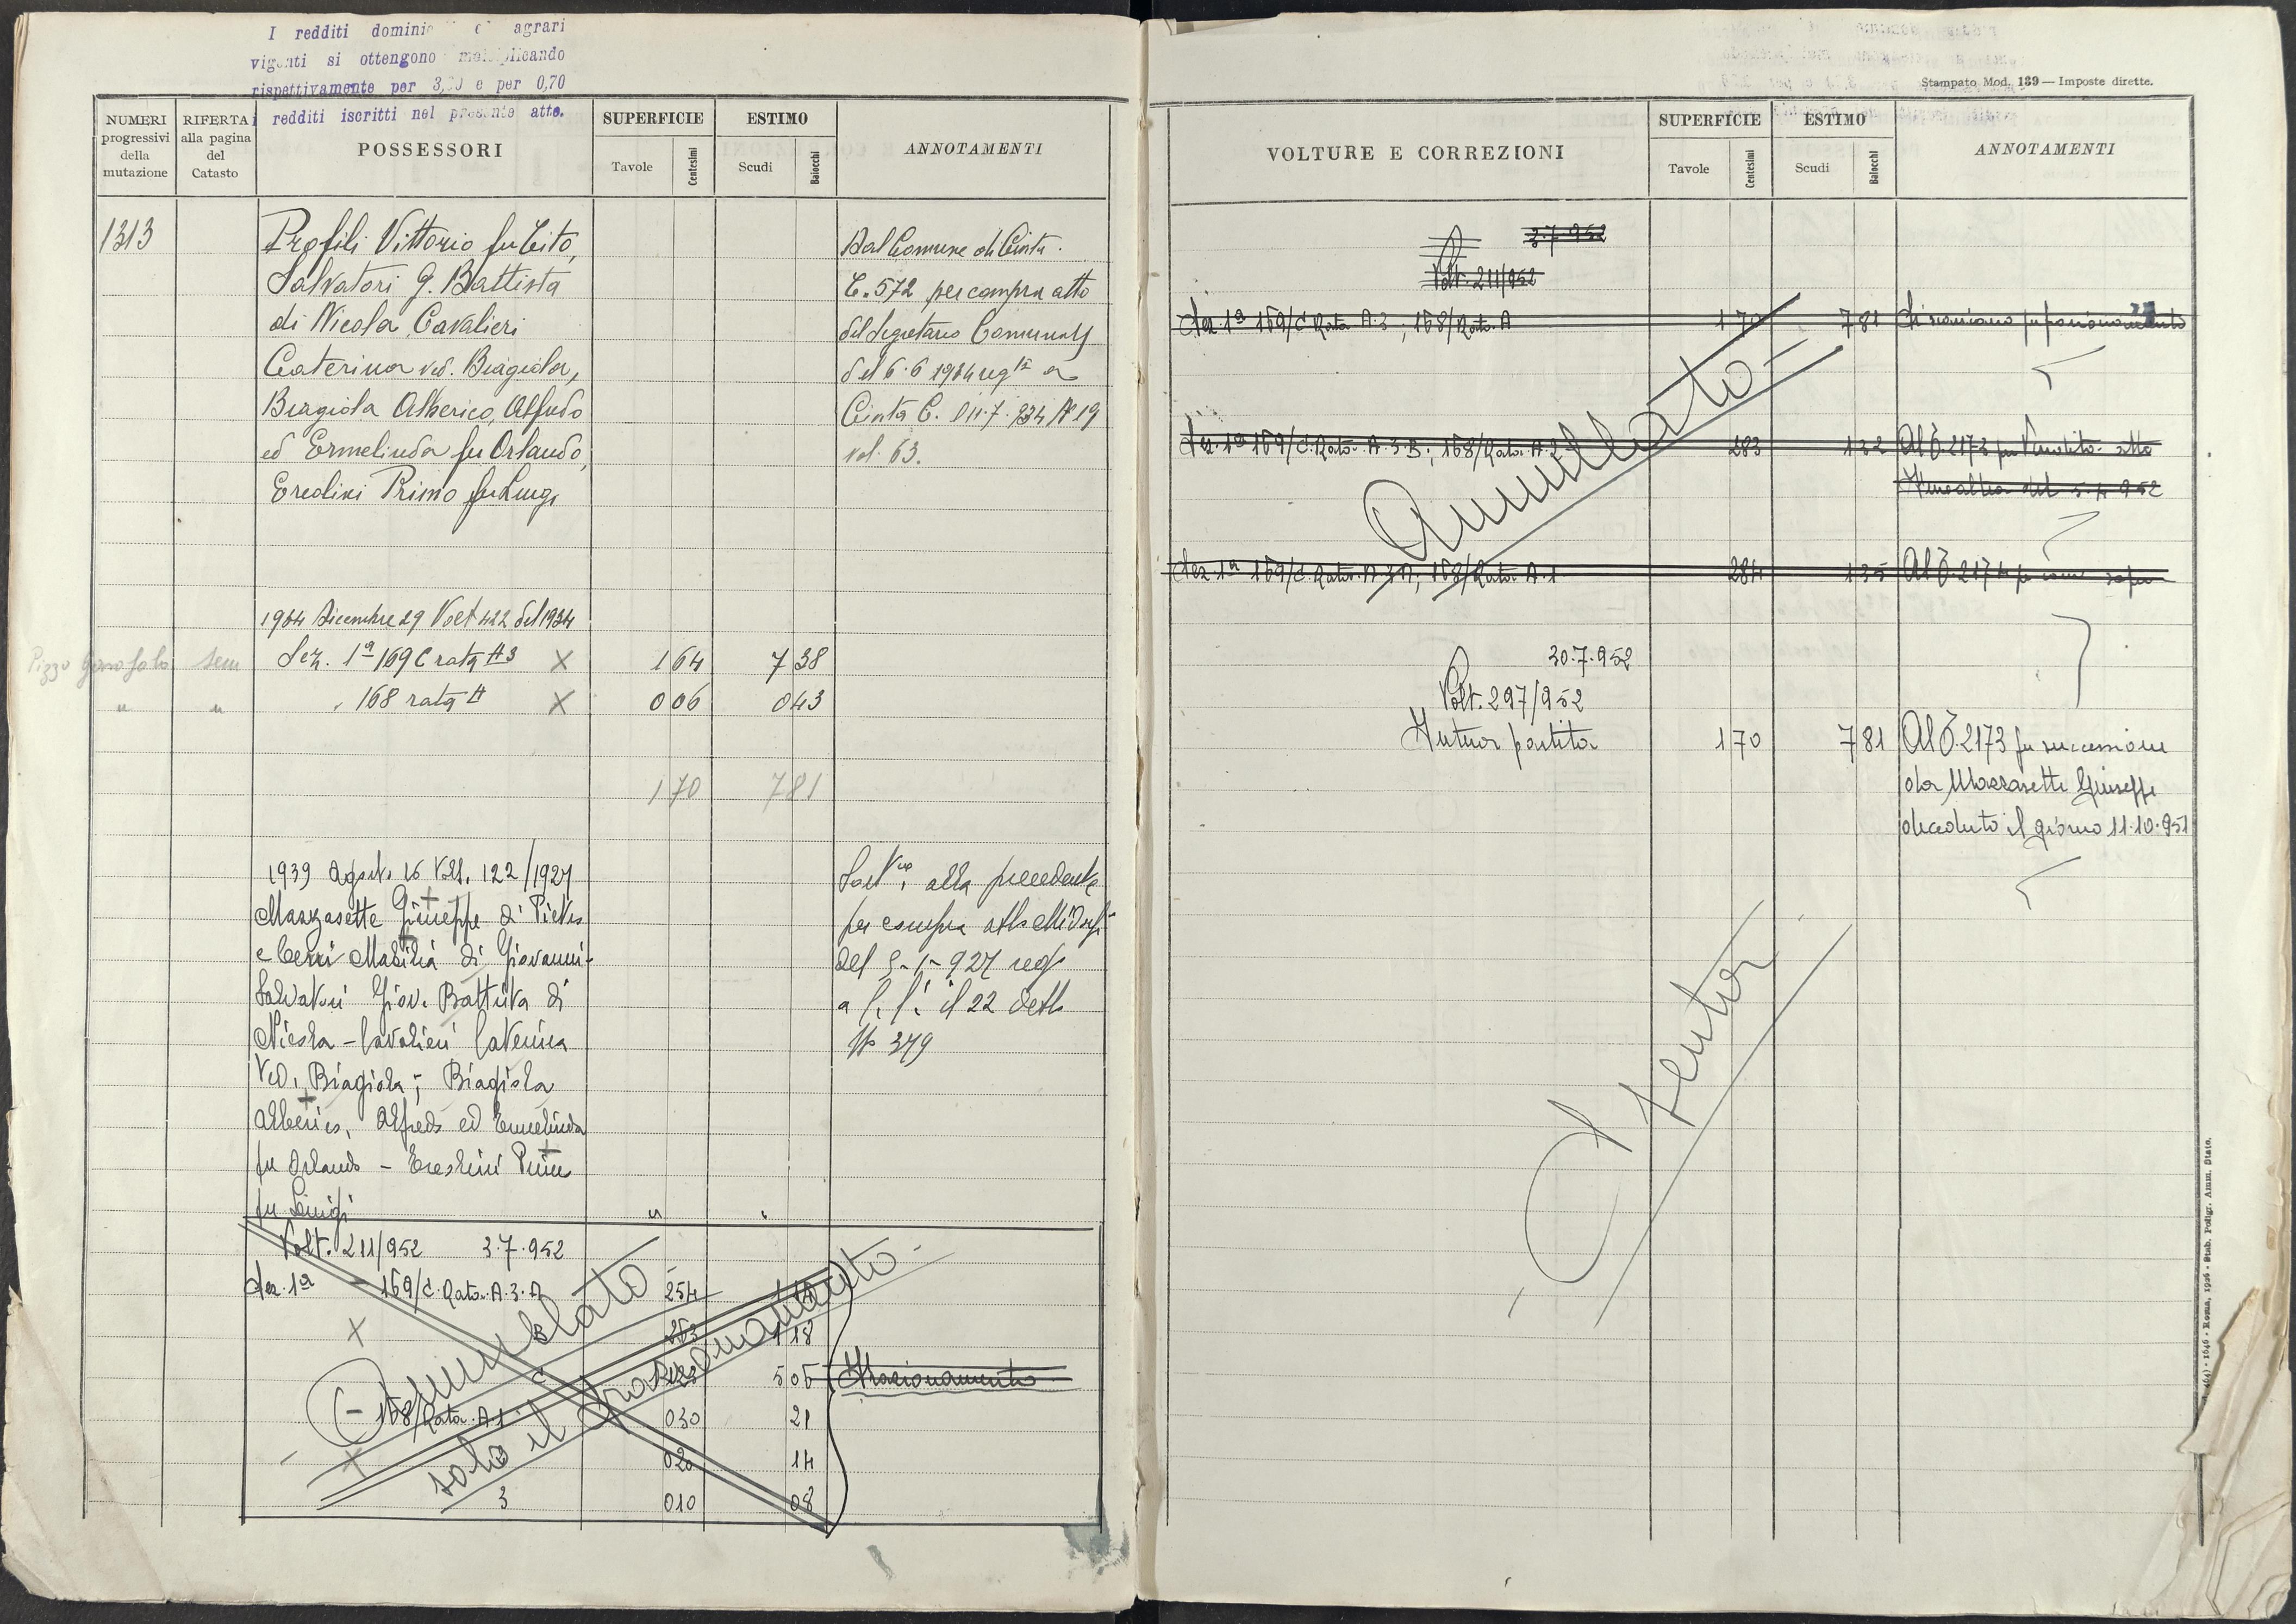 I redditi domini e agrari
vigenti si ottengono moltiplicando
rispettivamente per 3, e per 0,70
i redditi iscritti nel presente atto.
NUMERI progressivi della mutazione
RIFERTA alla pagina del Catasto
POSSESSORI
SUPERFICIE
Tavole
Centesimi
ESTIMO
Scudi
Baiocchi
ANNOTAMENTI
1313
Profili Vittorio fu Tito,
Salvatori G. Battista
di Nicola, Cavalieri
Caterina ved. Biagiola,
Biagiola Alberico, Alfredo
ed Ermelinda fu Orlando,
Ercolini Primo fu Luigi
Dal Comune di Civita
C. 572 per compra atto
del Segretario Comunale
del 6.6 1934 reg
Civita C. l 11.7.934 N° 19
vol. 63.
1934 Dicembre 29 Volt 422 del 1934
Pizzo Garofalo sem Sez. 1ª 169 C rata A3 X 1 64 7 38
" " " 168 rata A X 0 06 0 43
1 70 7 81
1939 Agosto 16 Volt. 122/1927
Mazzasette Giuseppe di Pietro
e Cerri Masilia di Giovanni-
Salvatori Giov. Battista di
Nicola - Cavalieri Caterina
Ved. Biagiola; Biagiola
Alberico, Alfredo ed Ermelinda
fu Orlando - Ercolini Primo
fu Luigi " "
alla precedente
per compra atto
del 5-1-927 reg
a il 22 detto
N° 379
Volt. 211/952 3.7.952
Sez. 1ª - 169/C Rata A.3.A 254
X B 253 1 18
C 5 05 Frazionamento
- 168/Rata A.1 030 21
X 2 020 14
3 010 08
Annullato
solo il frazionamento
Stampato Mod. 139 — Imposte dirette.
VOLTURE E CORREZIONI
SUPERFICIE
Tavole
Centesimi
ESTIMO
Scudi
Baiocchi
ANNOTAMENTI
3.7.952
Volt. 211/952
Sez. 1ª 169/C Rata A.3; 168/Rata A 1 70 7 81 Si scaricano per frazionamento
Sez. 1ª 169/C Rata A.3.B; 168/Rata A.2 283 1 32 Al C. 2173 per Vendita atto
del 5.4.952
Sez. 1ª 169/C Rata A.3.A; 168/Rata A.1 284 1 35 Al C. 217 per come sopra
Annullato
30.7.952
Volt. 297/952
Intera partita 1 70 7 81 Al C. 2173 per successione
da Mazzasette Giuseppe
deceduto il giorno 11.10.951
Spenta
1646 - Roma, 1926 - Stab. Poligr. Amm. Stato.